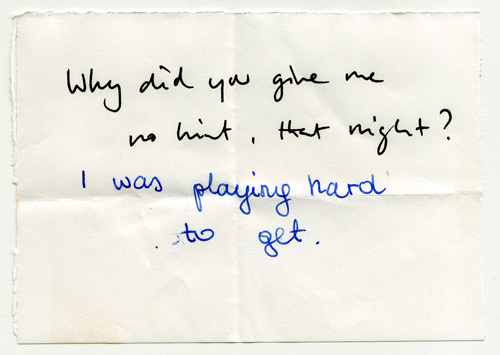 Why did you give me
no hint, that night?
I was playing hard
to get.